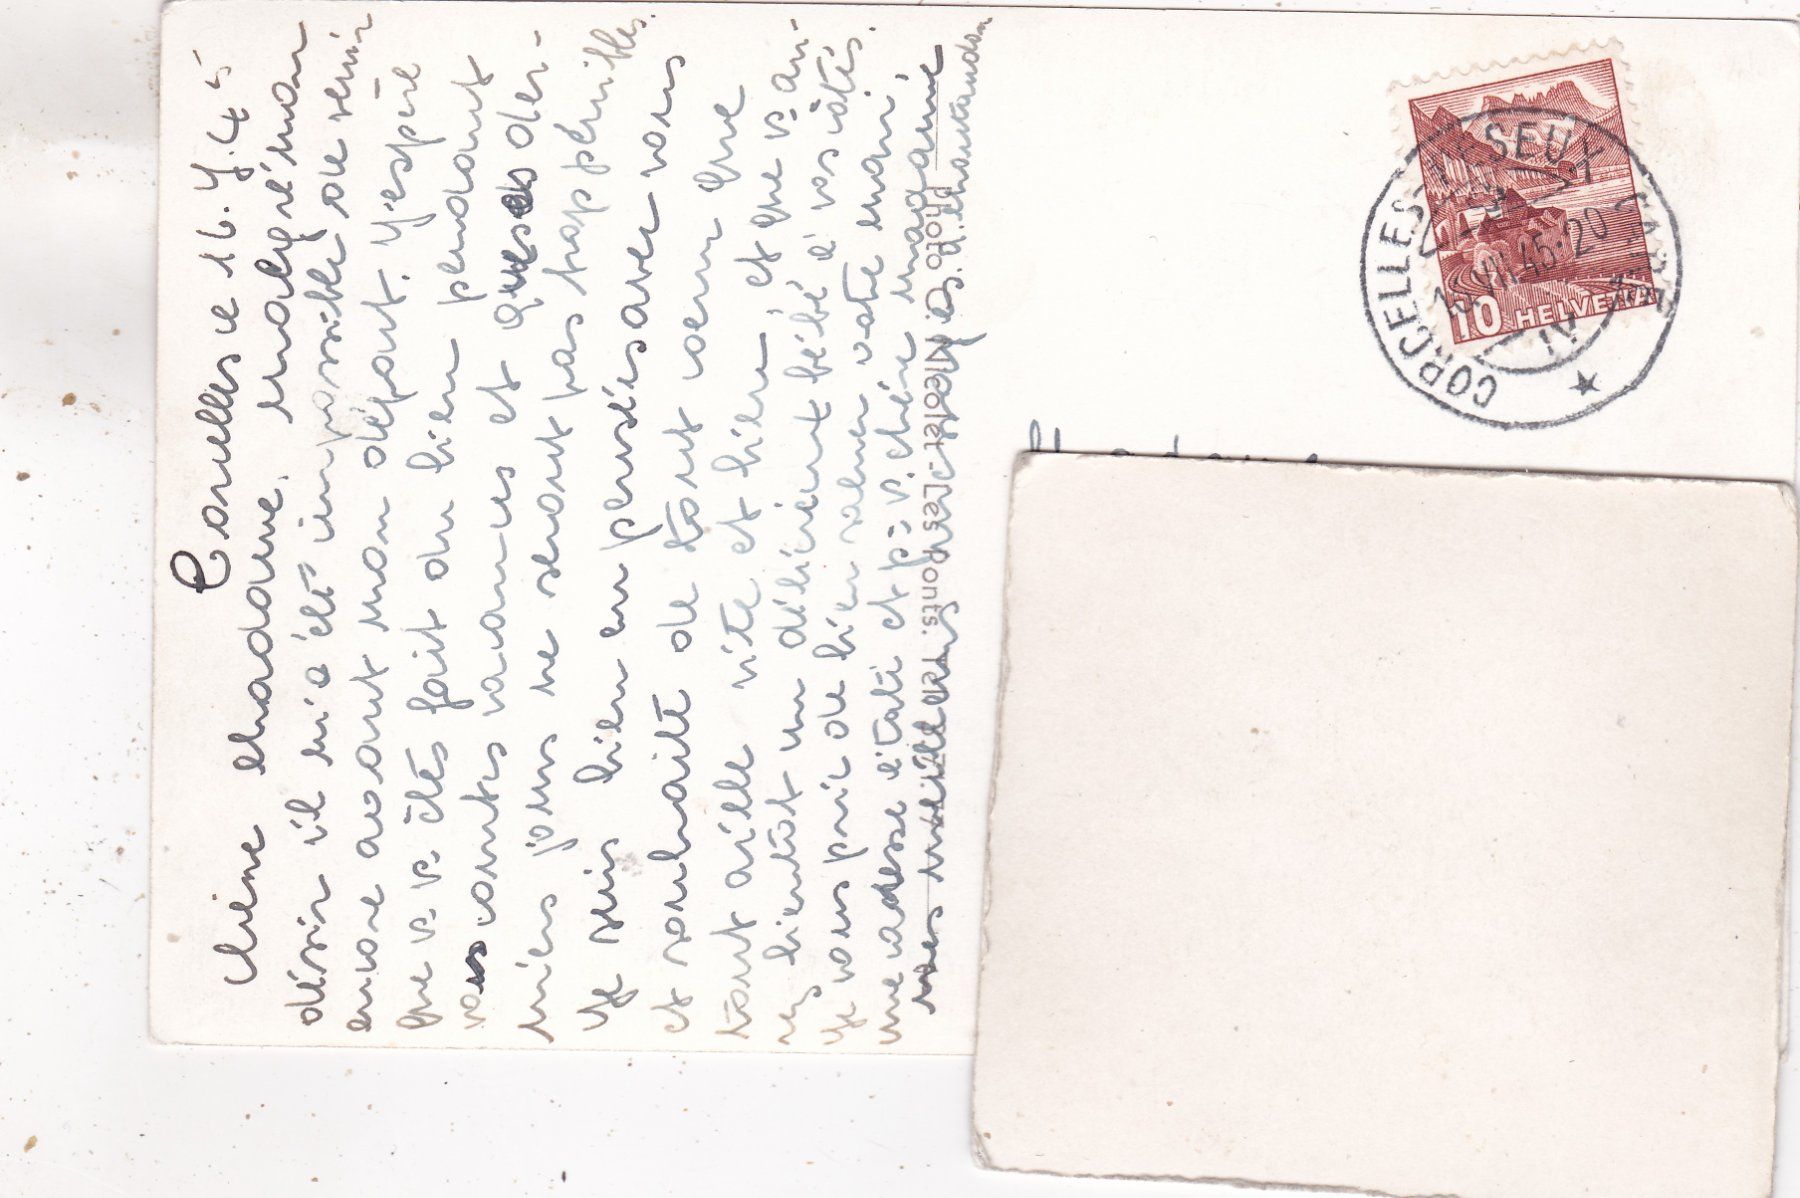 Corcelles le 16.7.45
Chère Madame, malgré mon
désir il m'a été impossible de venir
encore avant mon départ. J'espère
que v. v. êtes fait du bien pendant
vos courtes vacances et que ces der-
niers jours ne seront pas trop pénibles.
Je suis bien en pensées avec vous
et souhaite de tout coeur que
tout aille vite et bien, et que v. au-
rez bientôt un délicieux bébé à vos côtés.
Je vous prie de bien saluer votre mari,
une caresse à Cati et p. v. chère
mes meilleurs
Photo Nicolet - Les Ponts. Tél.
CORCELLES
VII.45-20
IV
10 HELVETIA